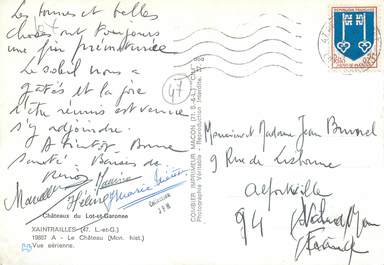 Les bonnes et belles
choses ont toujours
une fin prématurée
Le soleil nous a
gâtés et la joie
d'être réunis est venue
s'y adjoindre.
A bientôt. Bonne
santé. Baisers de
Marcelle Hélène Marie
47
Châteaux du Lot-et-Garonne
XAINTRAILLES (47. L.-et-G.)
19857 A - Le Château (Mon. hist.)
Vue aérienne.
COMBIER IMPRIMEUR MACON (71. S.-&-L.) "CIM"
Photographie Véritable - Reproduction Interdite
REPUBLIQUE FRANÇAISE
0,25
Monsieur et Madame Jean Brunel
9 Rue de Lisbonne
Alfortville
94